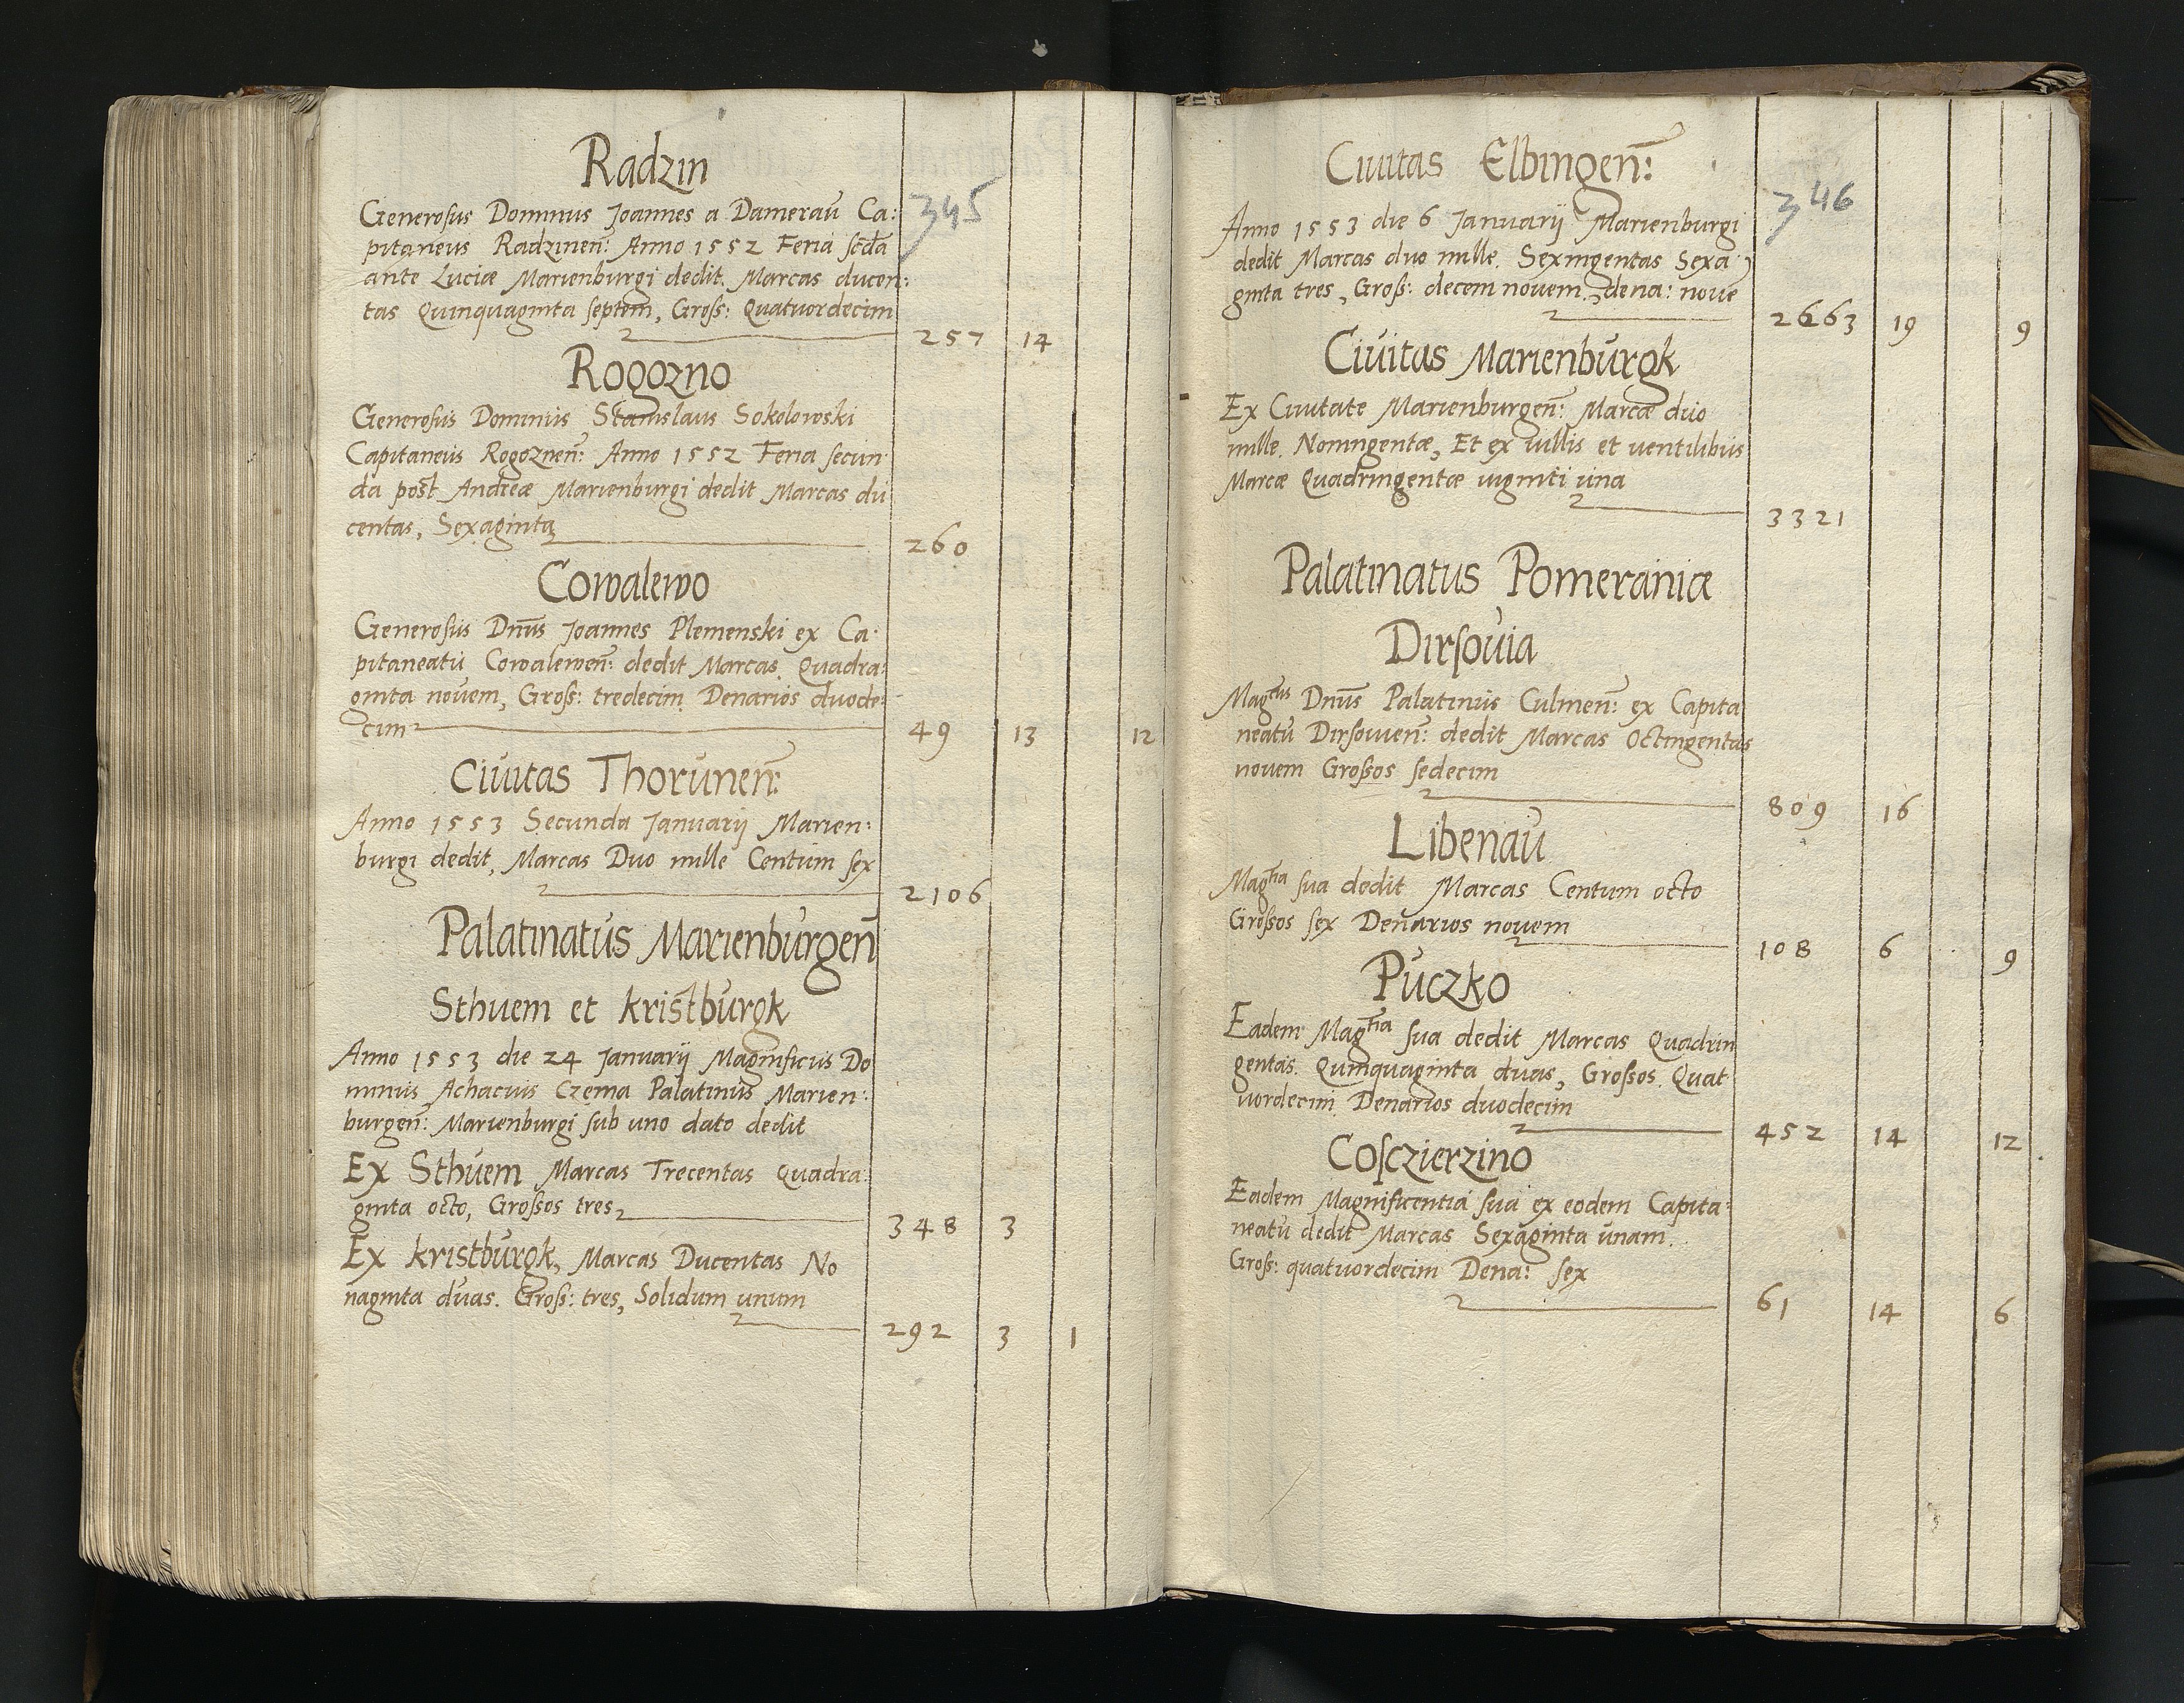 Radzin
345
Generosus Dominus Joannes a Damerau Ca:
pitaneus Radzinen: Anno 1552 Feria scda
ante Luciæ Marienburgi dedit. Marcas ducen:
tas Quinquaginta septem, Gross: Quatuordecim
257 14
Rogozno
Generosus Dominus Stanislaus Sokolowski
Capitaneus Rogoznen: Anno 1552 Feria secun
da post Andreæ Marienburgi dedit Marcas du
centas, Sexaginta
260
Cowalewo
Generosus Dnus Joannes Plemenski ex Ca:
pitaneatu Cowalewen: dedit Marcas Quadra:
ginta novem, Gross: tredecim Denarios duode:
cim
49 13 12
Civitas Thorunen:
Anno 1553 Secunda Januarij Marien:
burgi dedit, Marcas Duo mille Centum sex
2106
Palatinatus Marienburgen
Sthuem et Kristburgk
Anno 1553 die 24 Januarij Magnificus Do
minus Achacius Czema Palatinus Marien:
burgen: Marienburgi sub uno dato dedit
Ex Sthuem Marcas Trecentas Quadra:
ginta octo, Grossos tres
348 3
Ex Kristburgk, Marcas Ducentas No
naginta duas. Gross: tres, Solidum unum
292 3 1
Civitas Elbingen:
346
Anno 1553 die 6 Januarij Marienburgi
dedit Marcas duo mille. Sexingentas Sexa
ginta tres, Gross: decem novem, dena: nove
2663 19 9
Civitas Marienburgk
Ex Civitate Marienburgen: Marcæ duo
mille. Noningentæ, Et ex uillis et uentilibus
Marcæ Quadringentæ uiginti una
3321
Palatinatus Pomeraniæ
Dirsouia
Magcus Dnus Palatinus Culmen: ex Capita
neatu Dirsouien: dedit Marcas Octingentas
nouem Grossos sedecim
809 16
Libenau
Magtia sua dedit Marcas Centum octo
Grossos sex Denarios nouem
108 6 9
Puczko
Eadem Magtia sua dedit Marcas Quadrin
gentas. Quinquaginta duas, Grossos. Quat
uordecim Denarios duodecim
452 14 12
Cosczierzino
Eadem Magnificentia sua ex eodem Capita:
neatu dedit Marcas Sexaginta unam.
Gross: quatuordecim Dena: sex
61 14 6